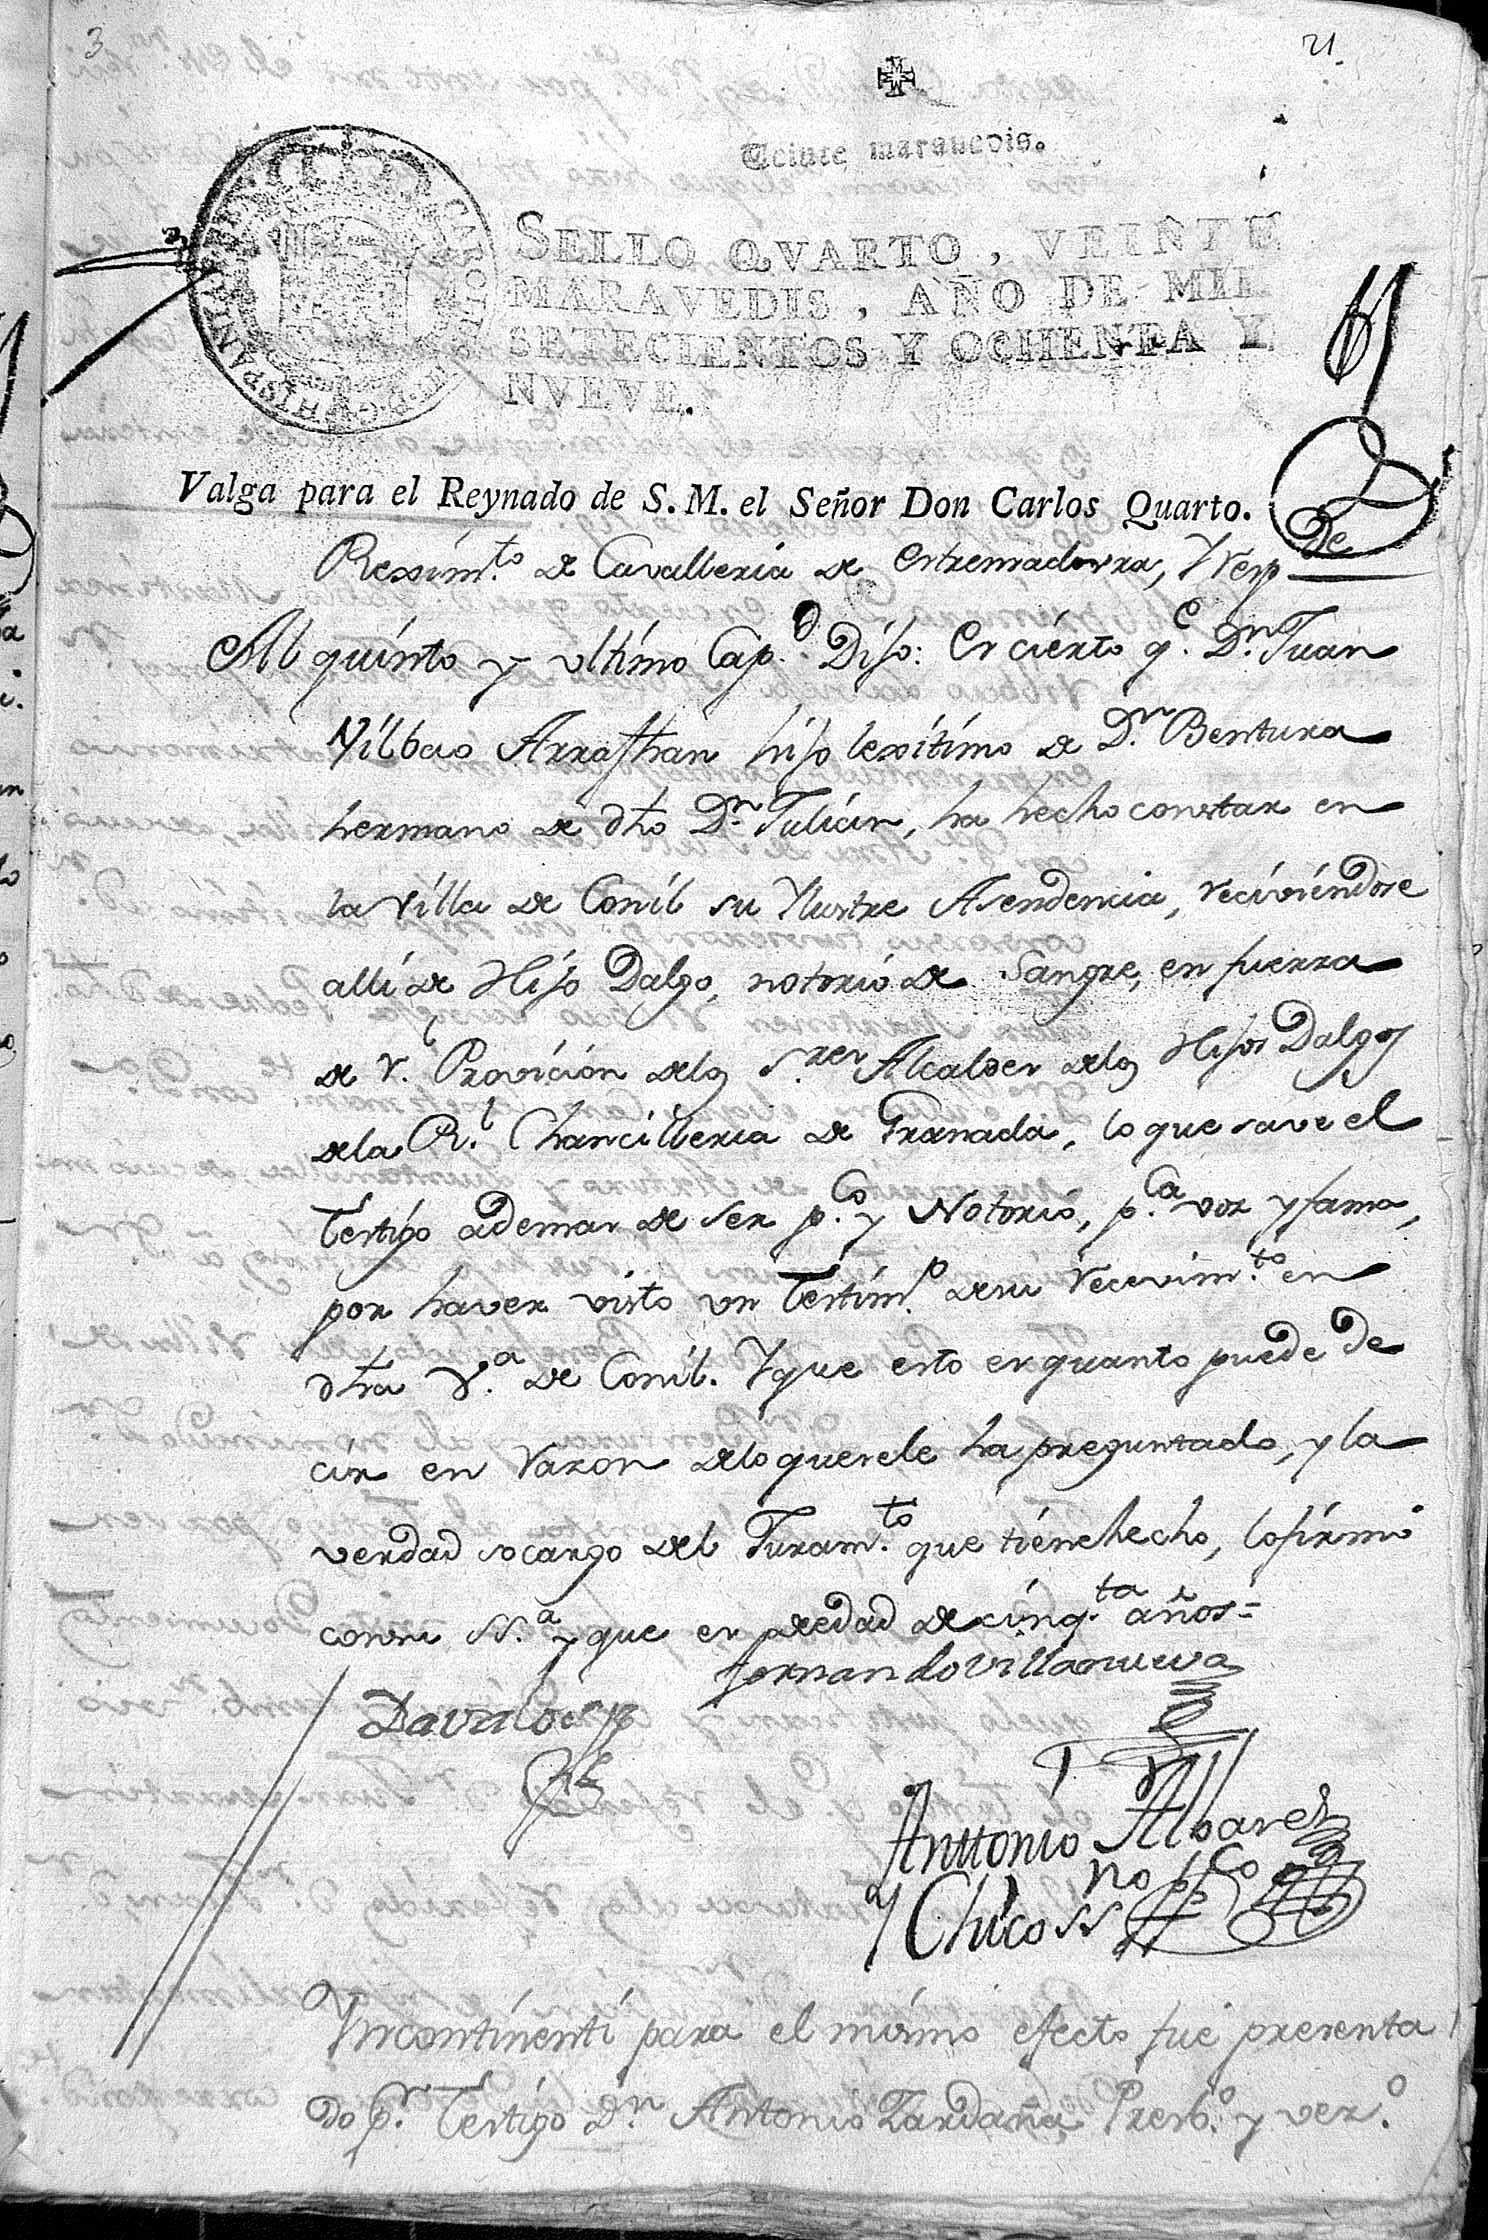 3
21
Veinte maravedis.
SELLO QVARTO, VEINTE
MARAVEDIS, AÑO DE MIL
SETECIENTOS Y OCHENTA Y
NVEVE.
HISPANIAR
Valga para el Reynado de S. M. el Señor Don Carlos Quarto.
Reximto. de Cavalleria de Extremadurra, Yresp de
Al quinto y ultimo Capo. Dijo: Es cierto qe. Dn. Juan
Vilbao Arrasthan hijo lexitimo de Dn. Bentura
hermano de dho Dn. Julian, ha hecho constar en
la Villa de Conil su Ylustre Asendencia, reciviendose
alli de Hijo Dalgo, notorio de Sangre, en fuerza
de Rl. Provicion delos Sres. Alcaldes delos Hijos Dalgos
dela Rl. Chancilleria de Granada, lo que save el
testigo ademas de ser pco. y Notorio, pca. voz y fama,
por haver visto un testimo. desu recevimto. en
dha Va. de Conil. Y que esto es quanto puede de
cir en razon delo que sele ha preguntado, y la
verdad socargo del Juramto. que tiene hecho, lo firmó
con su SSa. y que es de edad de cinqta. años =
Fernando Villanueva
Davalos
Anttonio Albarez
y Chico SS no ppco
Yncontinenti para el mismo efecto fue presenta
do pr. testigo Dn. Antonio Zardaña Presbo. y vezo.